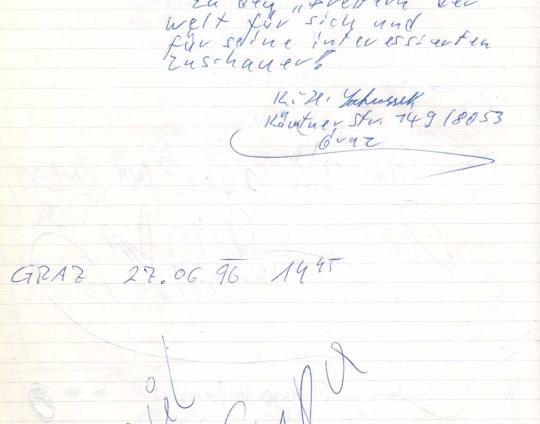 zu den "Brettern der
Welt für sich und
für seine interessierten
Zuschauer!
K. H.
Kärntner Str. 149 / 8053
Graz
GRAZ 27.06.96 14 45